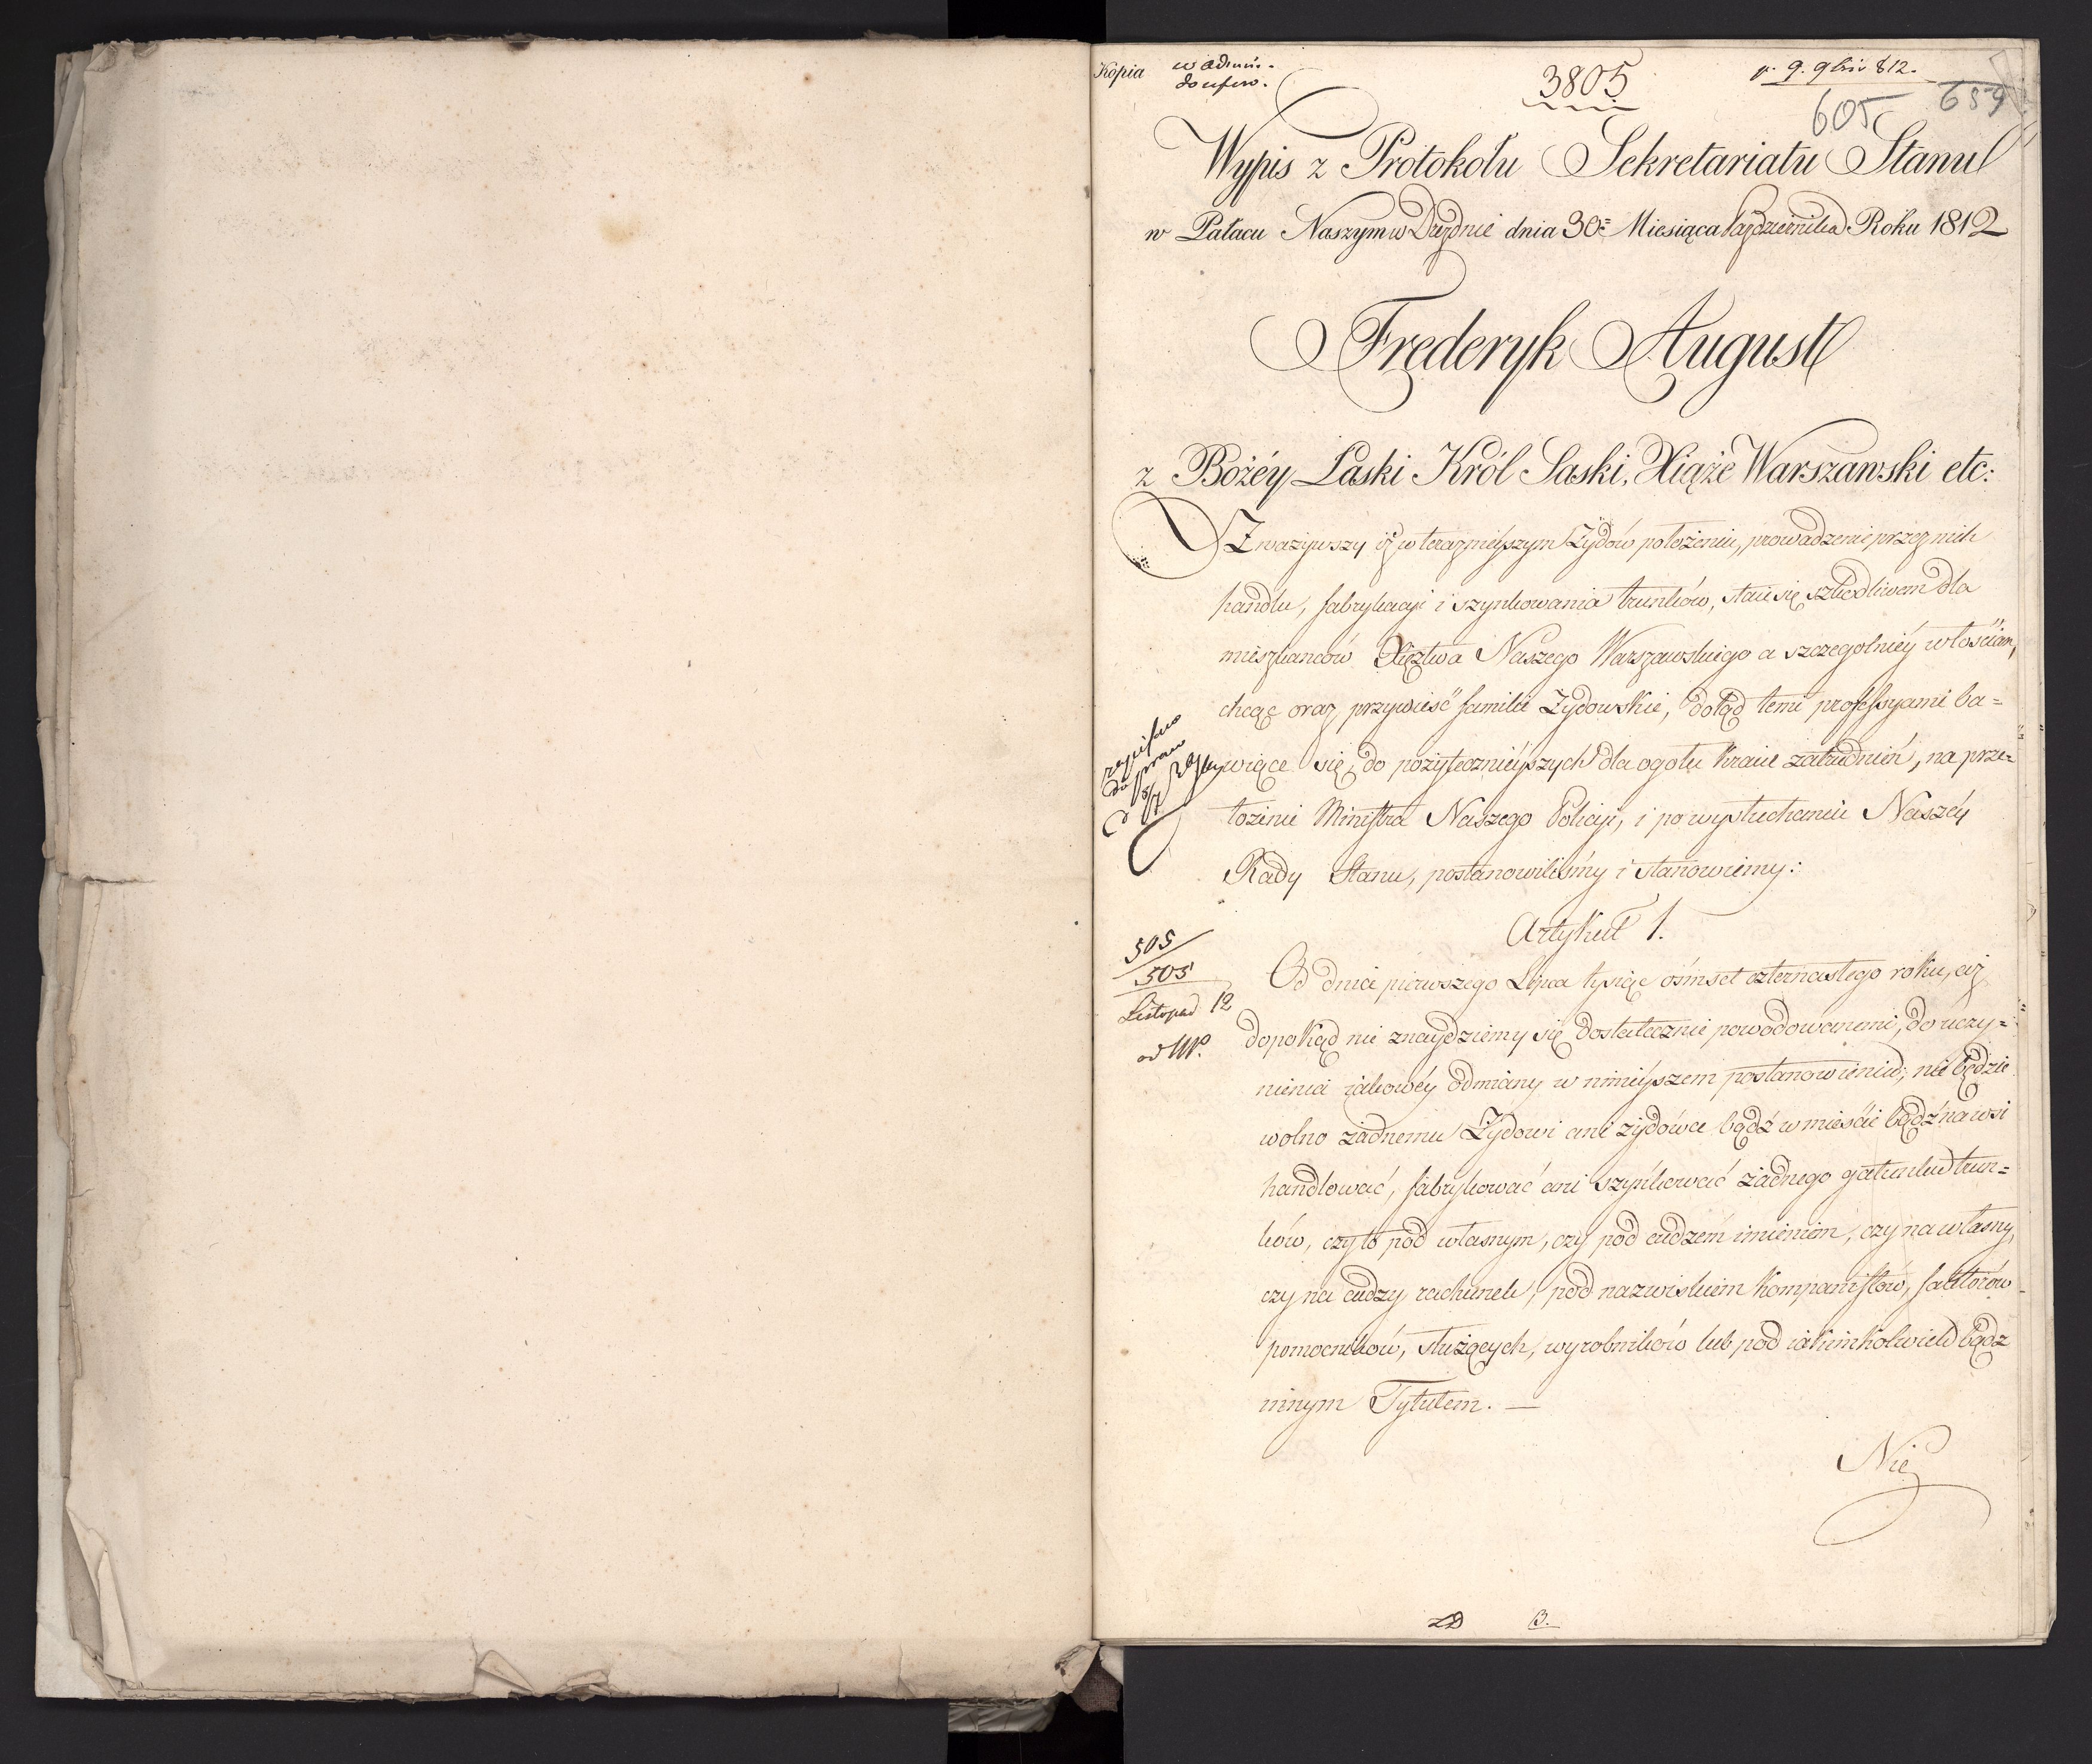 Kopia
3805
p. 9. 9bris 812.
605 659
Wypis z Protokołu Sekretariatu Stanu
w Pałacu Naszym w Dreźnie dnia 30= Miesiąca Października Roku 1812
Frederyk August
z Bożéy Łaski Król Saski, Xiąże Warszawski etc:
Zważywszy iż w teraźnieyszym Żydów położeniu, prowadzenie przez nich
handlu, fabrykacyi i szynkowania trunków, staie się szkodliwem dla
mieszkanców Xięztwa Naszego Warszawskiego a szczegolniéy włościan,
chcąc oraz przywieść familie Żydowskie, dotąd temi professyami ba=
wiące się, do pożytecznieyszych dla ogołu Kraiu zatrudnień, na prze=
łożenie Ministra Naszego Policyi, i po wysłuchaniu Naszéy
Rady Stanu, postanowiliśmy i stanowiemy:
Artykuł 1.
505
505
Listopad 12
Od dnia pierwszego Lipca tysiąc ośmset czternastego roku, aż
dopokąd nie znaydziemy się dostatecznie powodowanemi, do uczy=
nienia iakowéy odmiany w ninieyszem postanowieniu; nie będzie
wolno żadnemu Żydowi ani żydówce bądź w mieście bądź na wsi
handlować, fabrykować ani szynkować żadnego gatunku trun=
ków, czyto pod własnym, czy pod cudzem imieniem, czy na własny,
czy na cudzy rachunek, pod nazwiskiem Kompanistów, faktorów
pomocników, służących, wyrobników lub pod iakimkolwiek bądz
innym Tytułem. —
Nie
B.